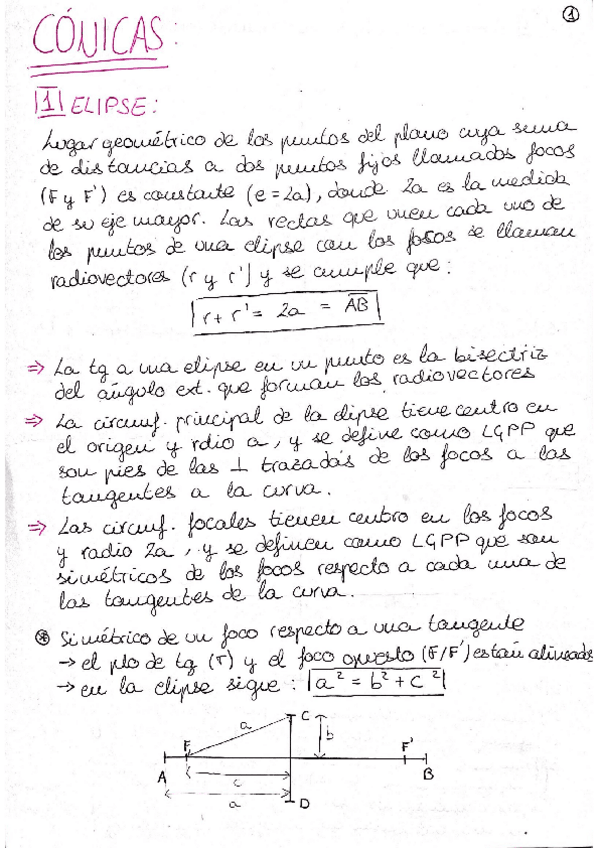 1
CÓNICAS:
1 ELIPSE:
Lugar geométrico de los puntos del plano cuya suma
de distancias a dos puntos fijos llamados focos
(F y F') es constante (e=2a), donde 2a es la medida
de su eje mayor. Las rectas que unen cada uno de
los puntos de una elipse con los focos se llaman
radiovectores (r y r') y se cumple que:
r + r' = 2a = AB
⇒ La tg a una elipse en un punto es la bisectriz
del ángulo ext. que forman los radiovectores
⇒ La circunf. principal de la elipse tiene centro en
el origen y rdio a, y se define como LGPP que
son pies de las ⊥ trazadas de los focos a las
tangentes a la curva.
⇒ Las circunf. focales tienen centro en los focos
y radio 2a, y se definen como LGPP que son
simétricos de los focos respecto a cada una de
las tangentes de la curva.
* Simétrico de un foco respecto a una tangente
→ el pto de tg (T) y el foco opuesto (F/F') están alineados
→ en la elipse sigue: a² = b² + c²
C
a
b
F
F'
A
B
c
a
D